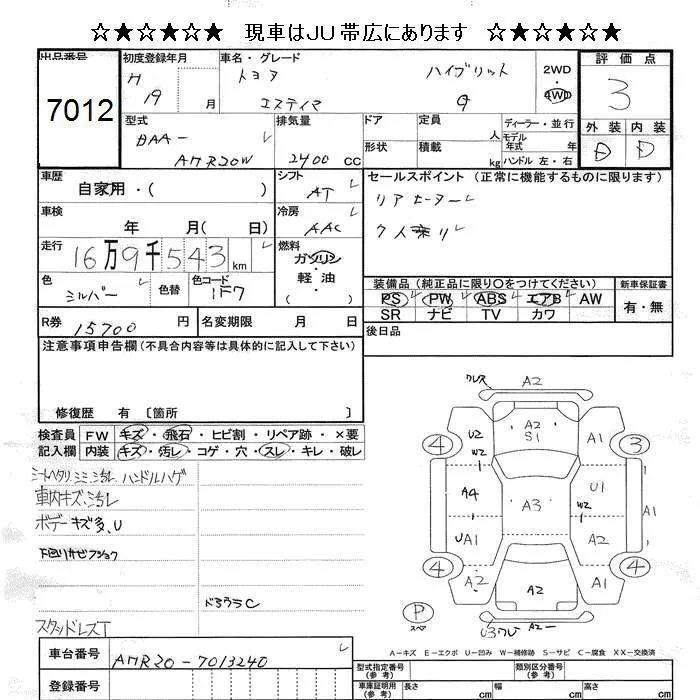 ☆★☆★☆ 現車はJU帯広にあります ☆★☆★☆
出品番号 初度登録年月 車名・グレード 評価点
7012
H 19 月
トヨタ ハイブリット
エスティマ G
2WD
4WD
3
外装 内装
D D
型式 排気量 ドア 定員 人 ディーラー・並行
モデル年式 年
DAA-
AHR20W 2400 cc 形状 積載 kg ハンドル 左・右
車歴 シフト セールスポイント(正常に機能するものに限ります)
自家用・( ) AT
リアヒーター
7人乗り
車検 冷房
年 月( 日) AAC
走行 燃料
16万9千543km ガソリン
軽・油
色 色替 色コード
シルバー 1F7
装備品(純正品に限り〇をつけてください) 新車保証書
PS PW ABS エアB AW 有・無
SR ナビ TV カワ
R券 15700 円 名変期限 月 日 後日品
注意事項申告欄(不具合内容等は具体的に記入して下さい)
修復歴 有 〔箇所 〕
検査員 FW キズ・飛石・ヒビ割・リペア跡・×要
記入欄 内装 キズ・汚し・コゲ・穴・スレ・キレ・破レ
シートヘタリ ハンドルハゲ
車内キズ・汚レ
ボデーキズ多、U
下回りサビフショク
スタッドレスT
クレス A2
A2
S1
4 U2 W2 A1 3
A4 A3 U1 W2 A1
UA1 A2
4 A2 A2 A1 4
P
スペア
A2
A-キズ E-エクボ U-凹み W-補修跡 S-サビ C-腐食 XX-交換済
車台番号 AHR20-7013240
登録番号
型式指定番号(参考) 類別区分番号(参考)
車庫証明用(参考) 長さ cm 幅 cm 高さ cm